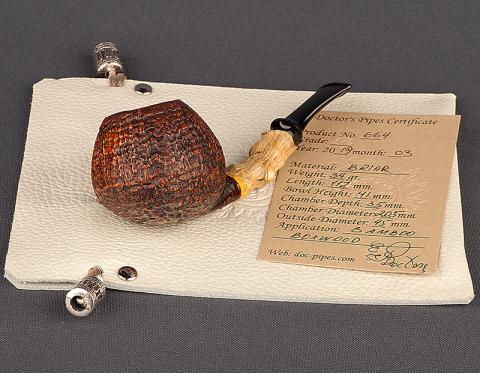 Doctor's Pipes Certificate
Product No. 664
Grade:
Year: 2019 month: 03
Material: BRIAR
Weight: 34 gr.
Length: 142 mm.
Bowl Height: 41 mm.
Chamber Depth: 35 mm.
Chamber Diameter: 20.5 mm.
Outside Diameter: 45 mm.
Application: BAMBOO
BOXWOOD
Web: doc-pipes.com